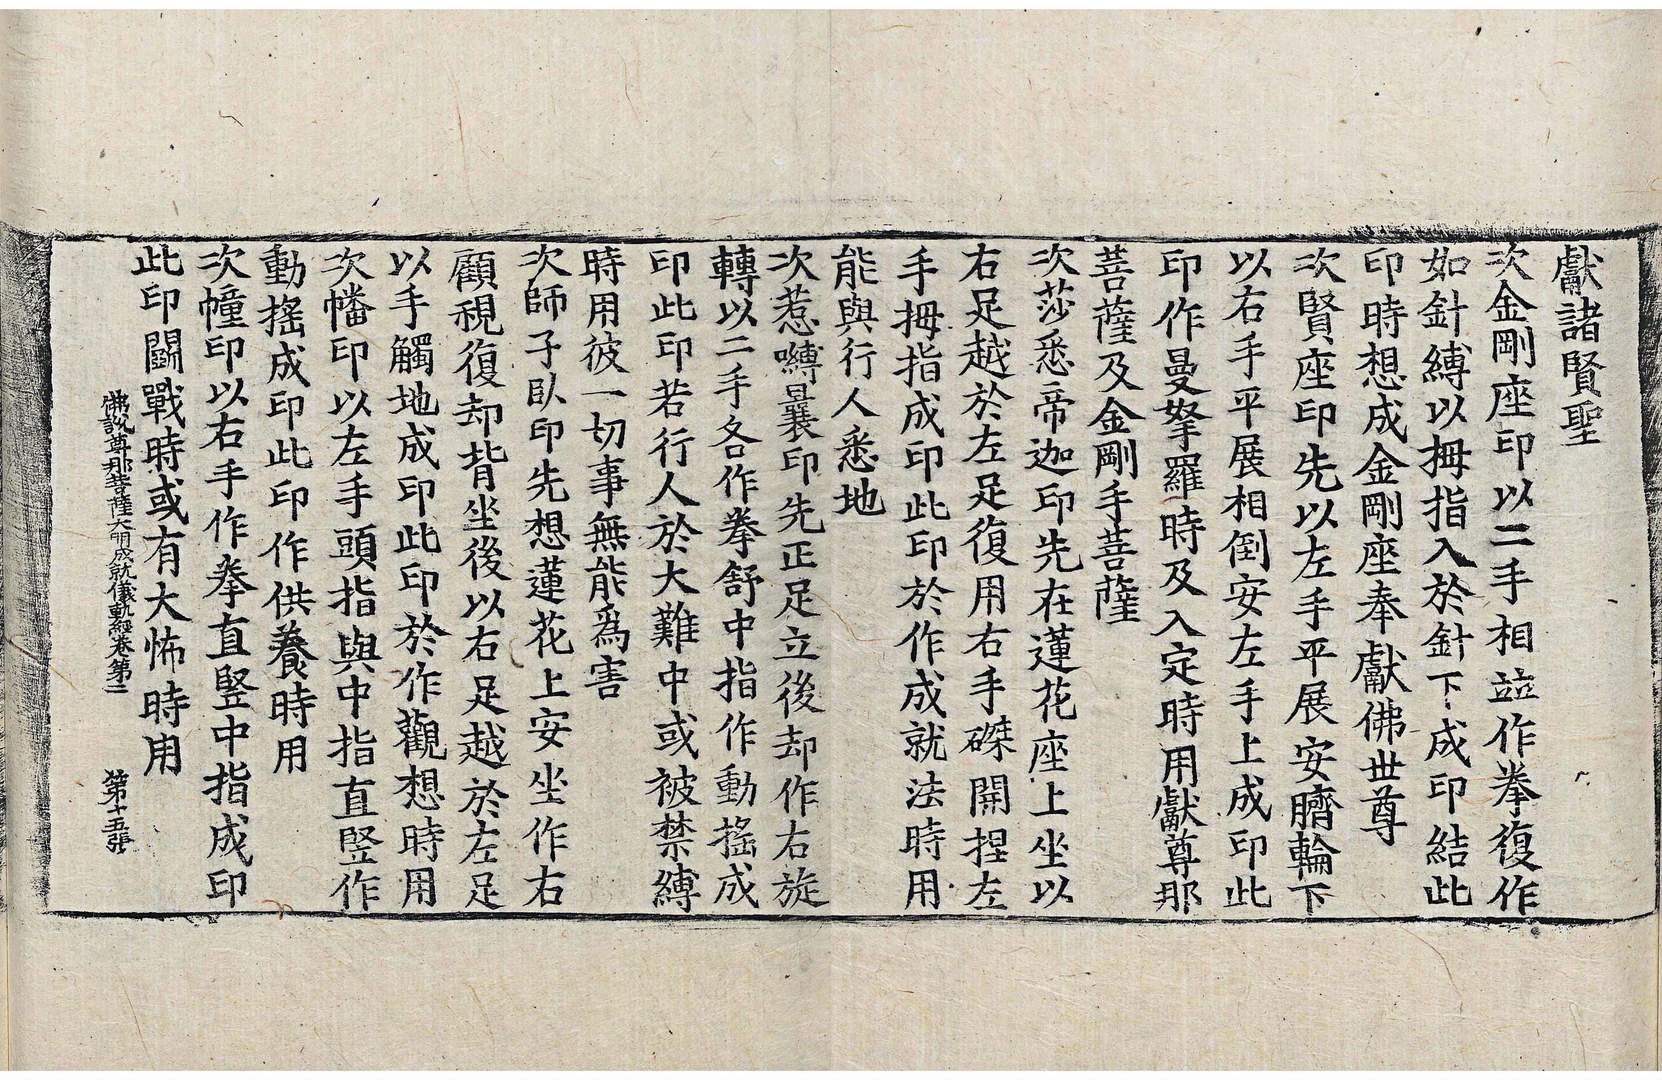 獻諸賢聖
次金剛座印以二手相並作拳復作
如針縛以拇指入於針下成印結此
印時想成金剛座奉獻佛世尊
次賢座印先以左手平展安臍輪下
以右手平展相倒安左手上成印此
印作曼拏羅時及入定時用獻尊那
菩薩及金剛手菩薩
次莎悉帝迦印先在蓮花座上坐以
右足越於左足復用右手磔開捏左
手拇指成印此印於作成就法時用
能與行人悉地
次惹嚩曩印先正足立後却作右旋
轉以二手各作拳舒中指作動搖成
印此印若行人於大難中或被禁縛
時用彼一切事無能爲害
次師子臥印先想蓮花上安坐作右
顧視復却背坐後以右足越於左足
以手觸地成印此印於作觀想時用
次幡印以左手頭指與中指直豎作
動搖成印此印作供養時用
次幢印以右手作拳直豎中指成印
此印鬬戰時或有大怖時用
佛說尊那菩薩大明成就儀軌經卷第二 第十五張